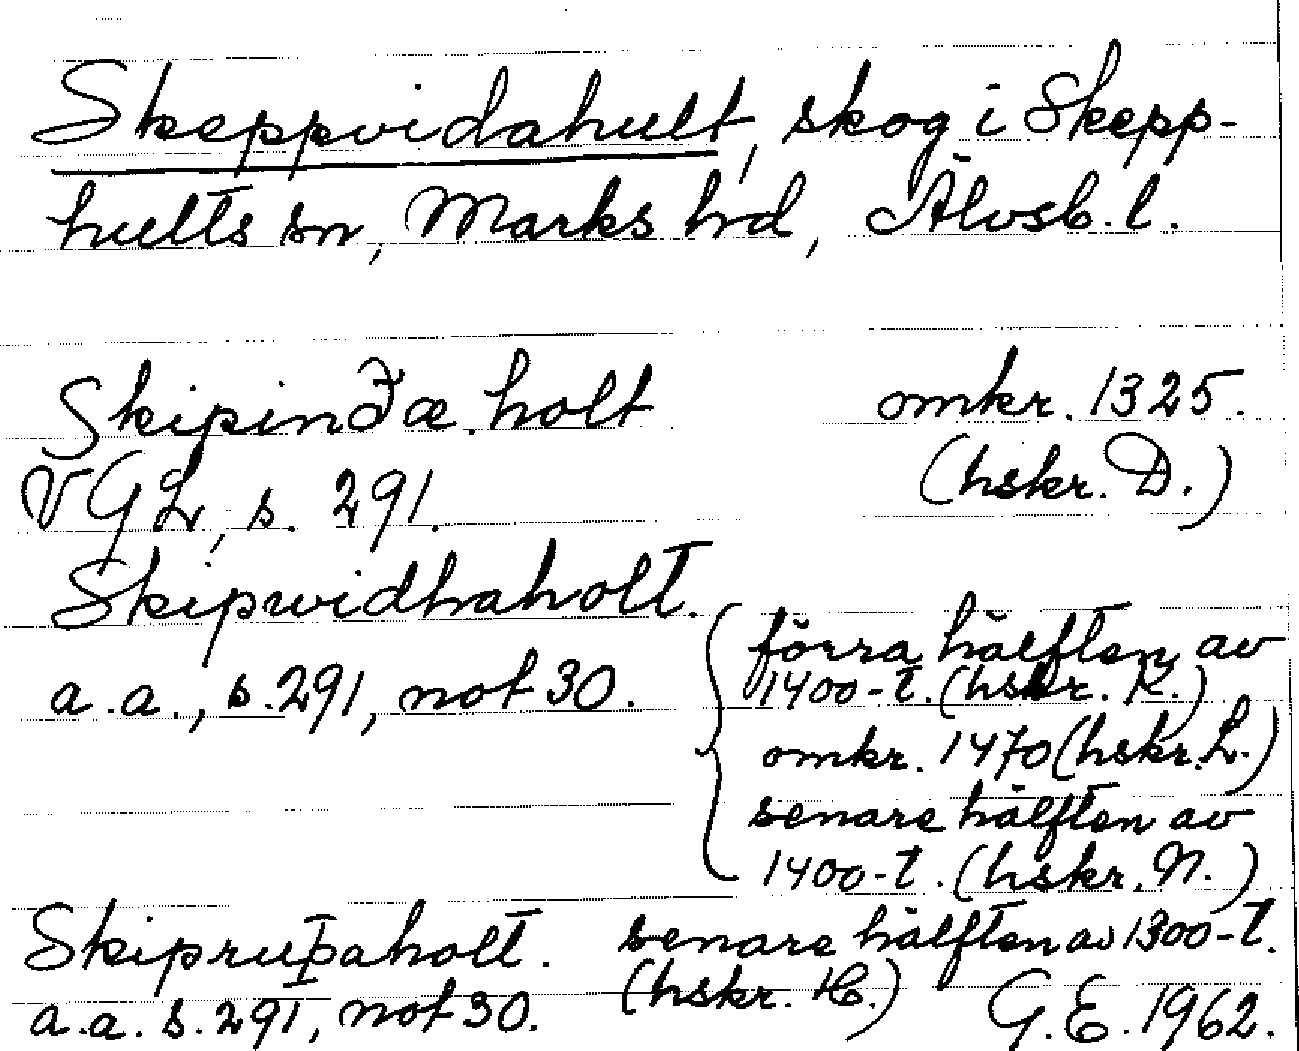 Skeppvidahult, skog i Skepp-
hults sn, Marks hd, Älvsb. l.
Skipinðæ holt omkr. 1325.
VGL, s. 291. (hskr. D.)
Skipwidhaholt.
a.a., s. 291, not 30.
förra hälften av
1400-t. (hskr. K.)
omkr. 1470 (hskr. L.)
senare hälften av
1400-t. (hskr. N.)
Skipruþaholt. senare hälften av 1300-t.
a.a. s. 291, not 30. (hskr. H.) G.E. 1962.